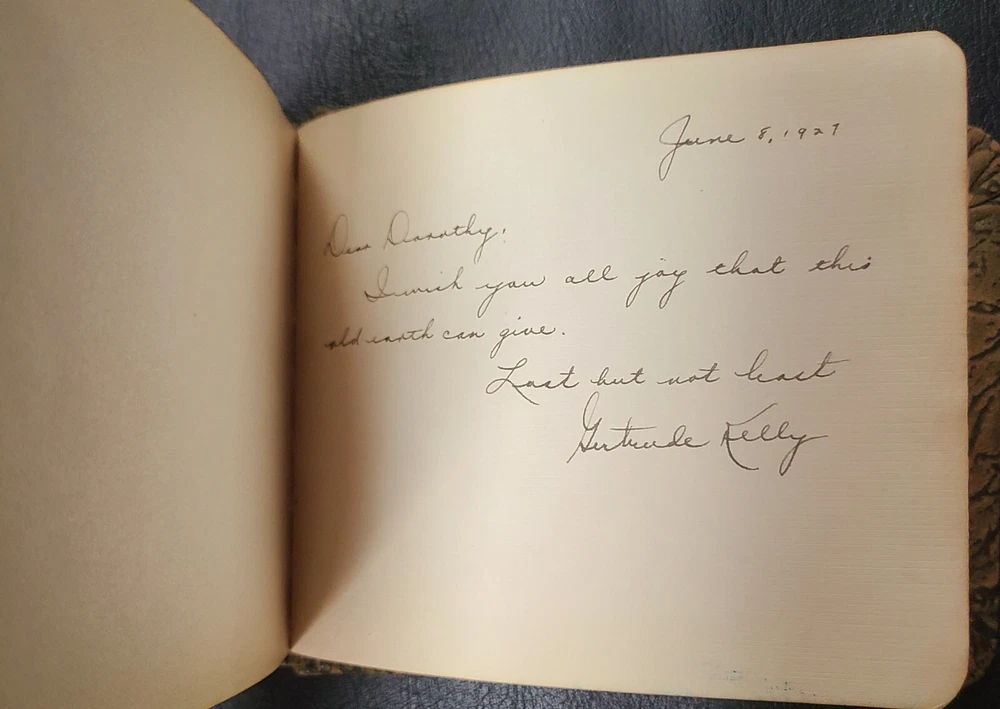 June 8, 1927
Dear Dorothy,
I wish you all joy that this
old earth can give.
Last but not least
Gertrude Kelly